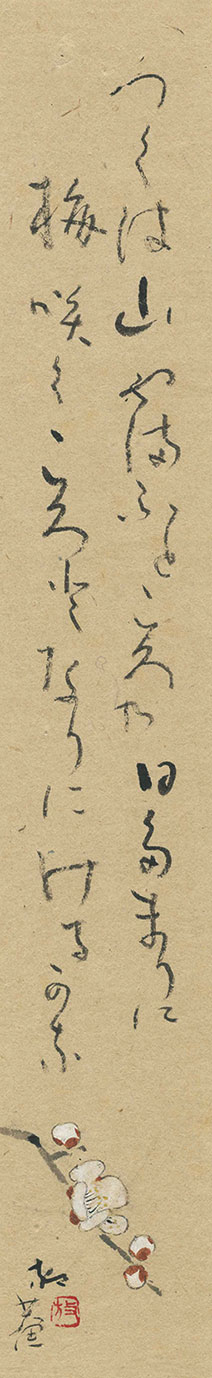 つくは山やまふところの日多まりに
梅咲くころとなりにけるかな
放菴
放